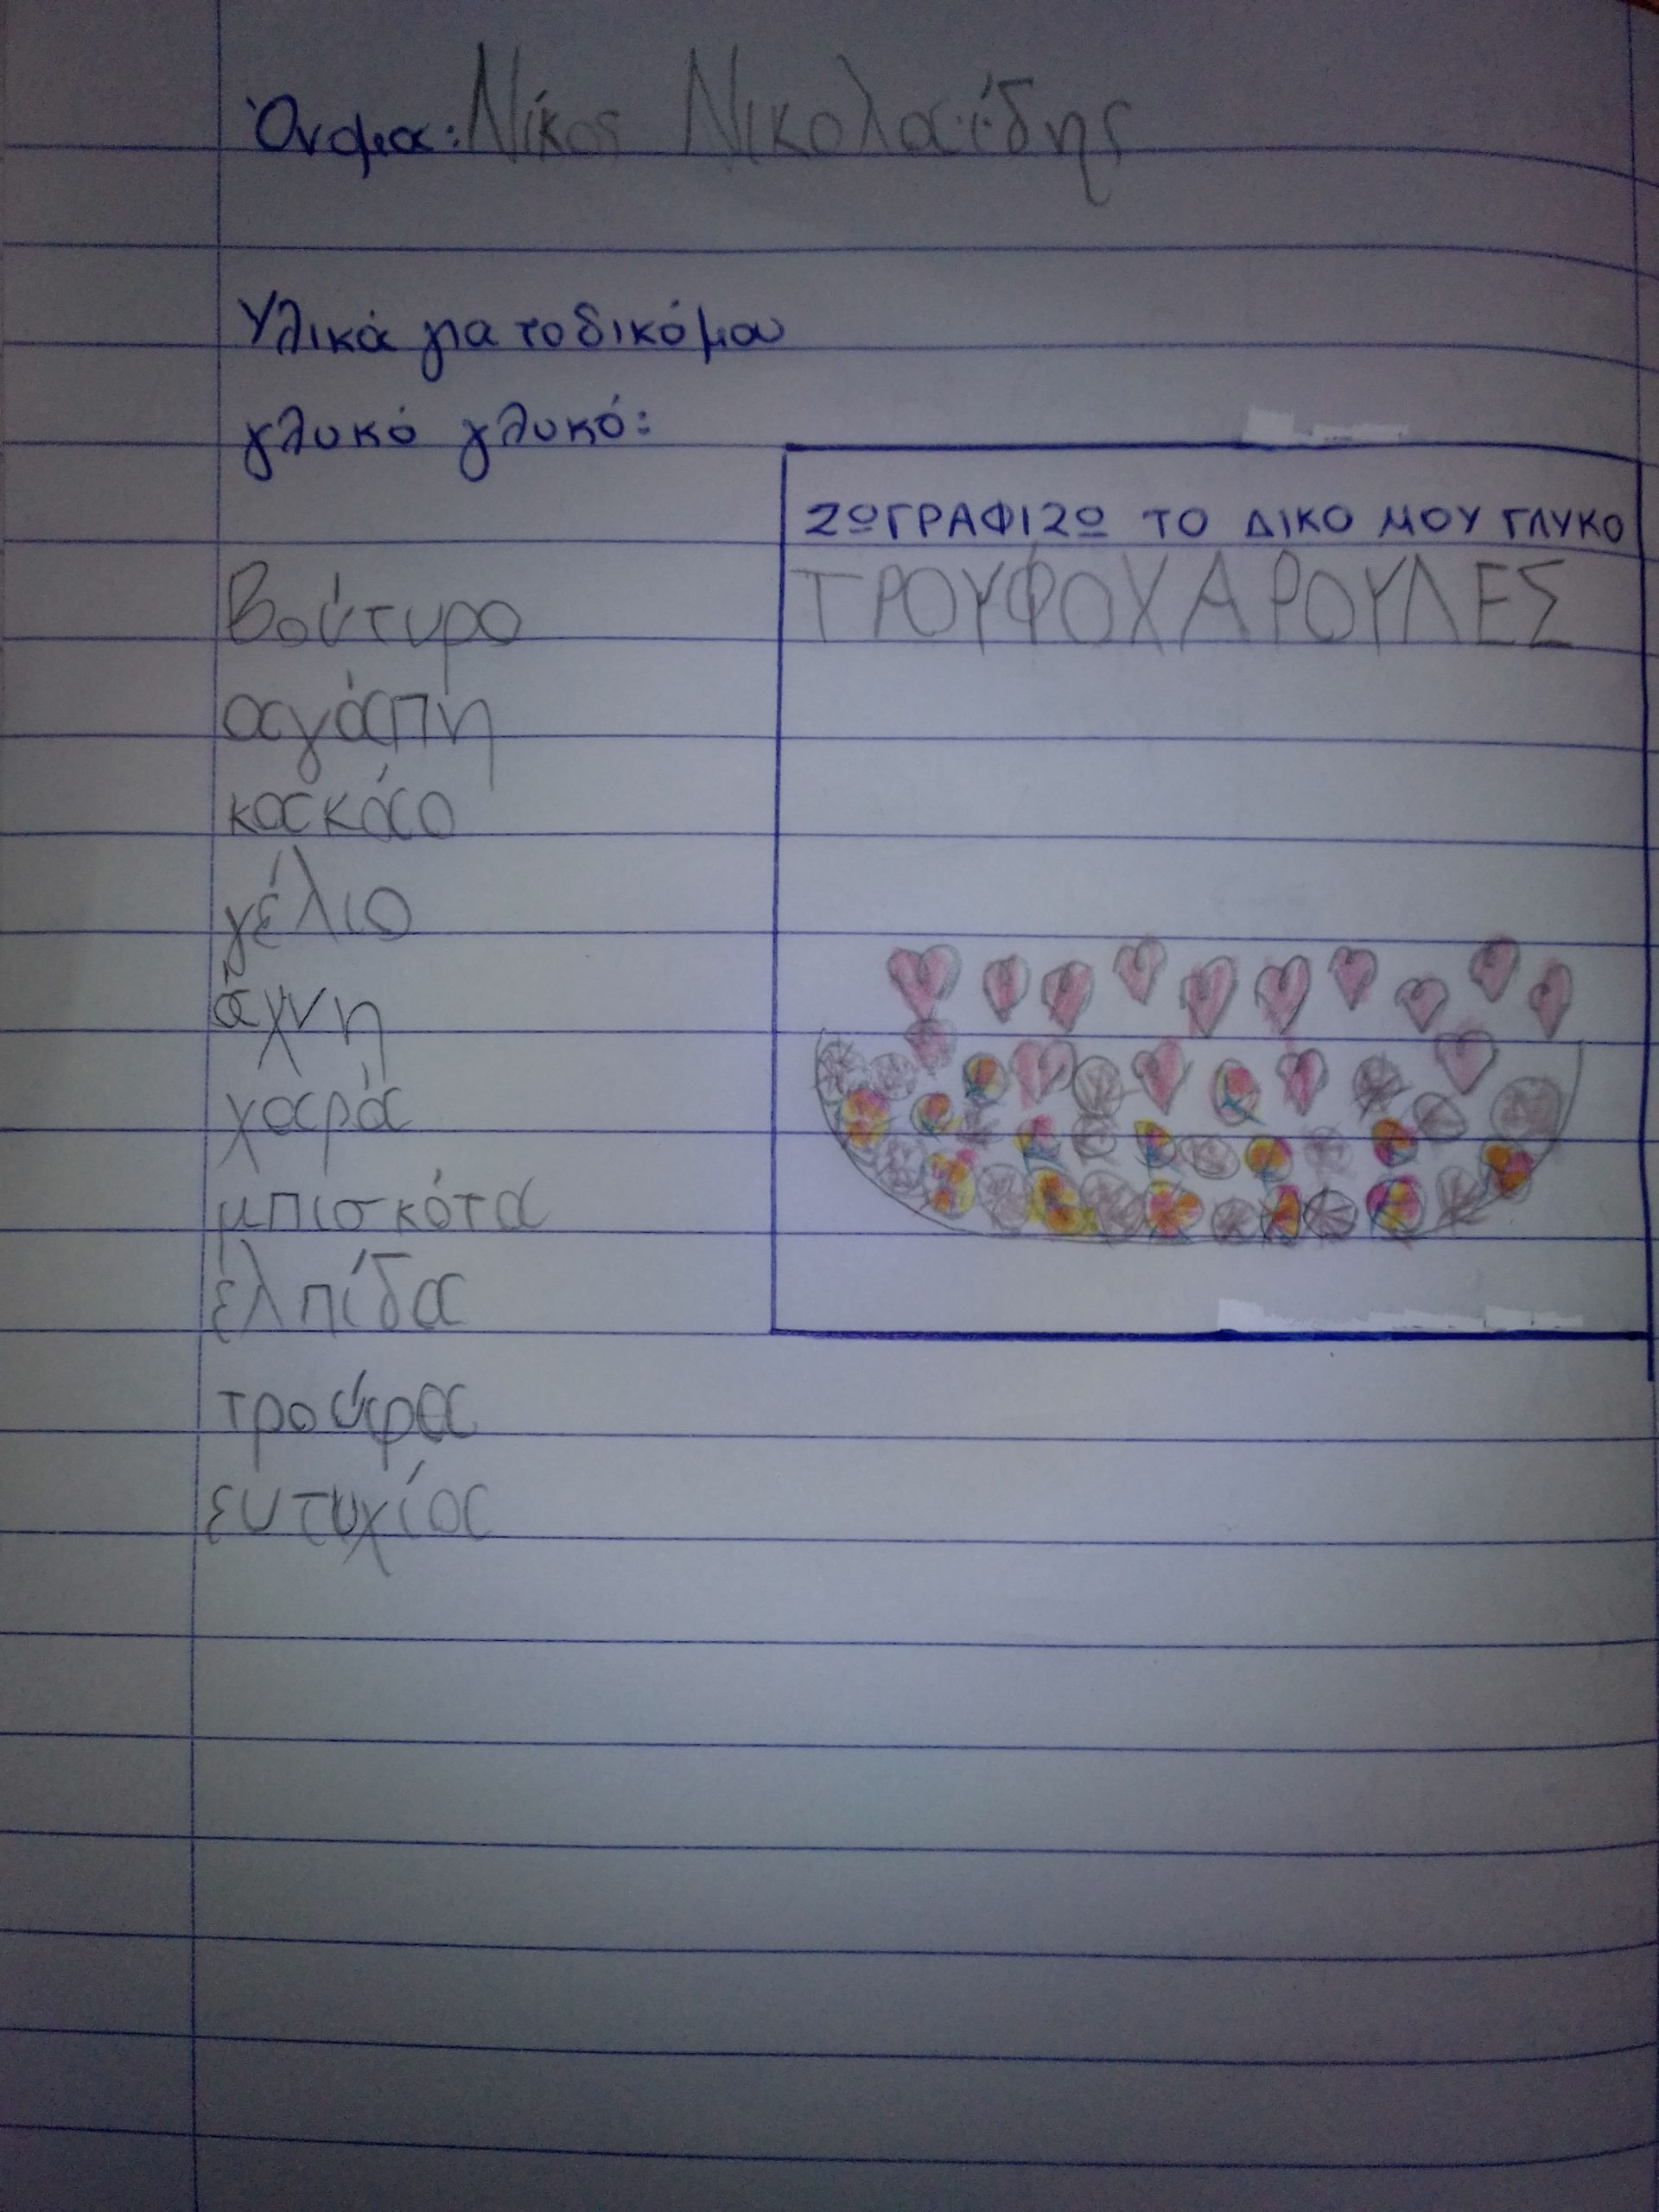 Όνομα: Νίκος Νικολαΐδης
Υλικά για το δικό μου
γλυκό γλυκό:
ΖΩΓΡΑΦΙΖΩ ΤΟ ΔΙΚΟ ΜΟΥ ΓΛΥΚΟ
ΤΡΟΥΦΟΧΑΡΟΥΛΕΣ
Βούτυρο
αγάπη
κακάο
γέλιο
άχνη
χαρά
μπισκότα
ελπίδα
τρούφα
ευτυχία